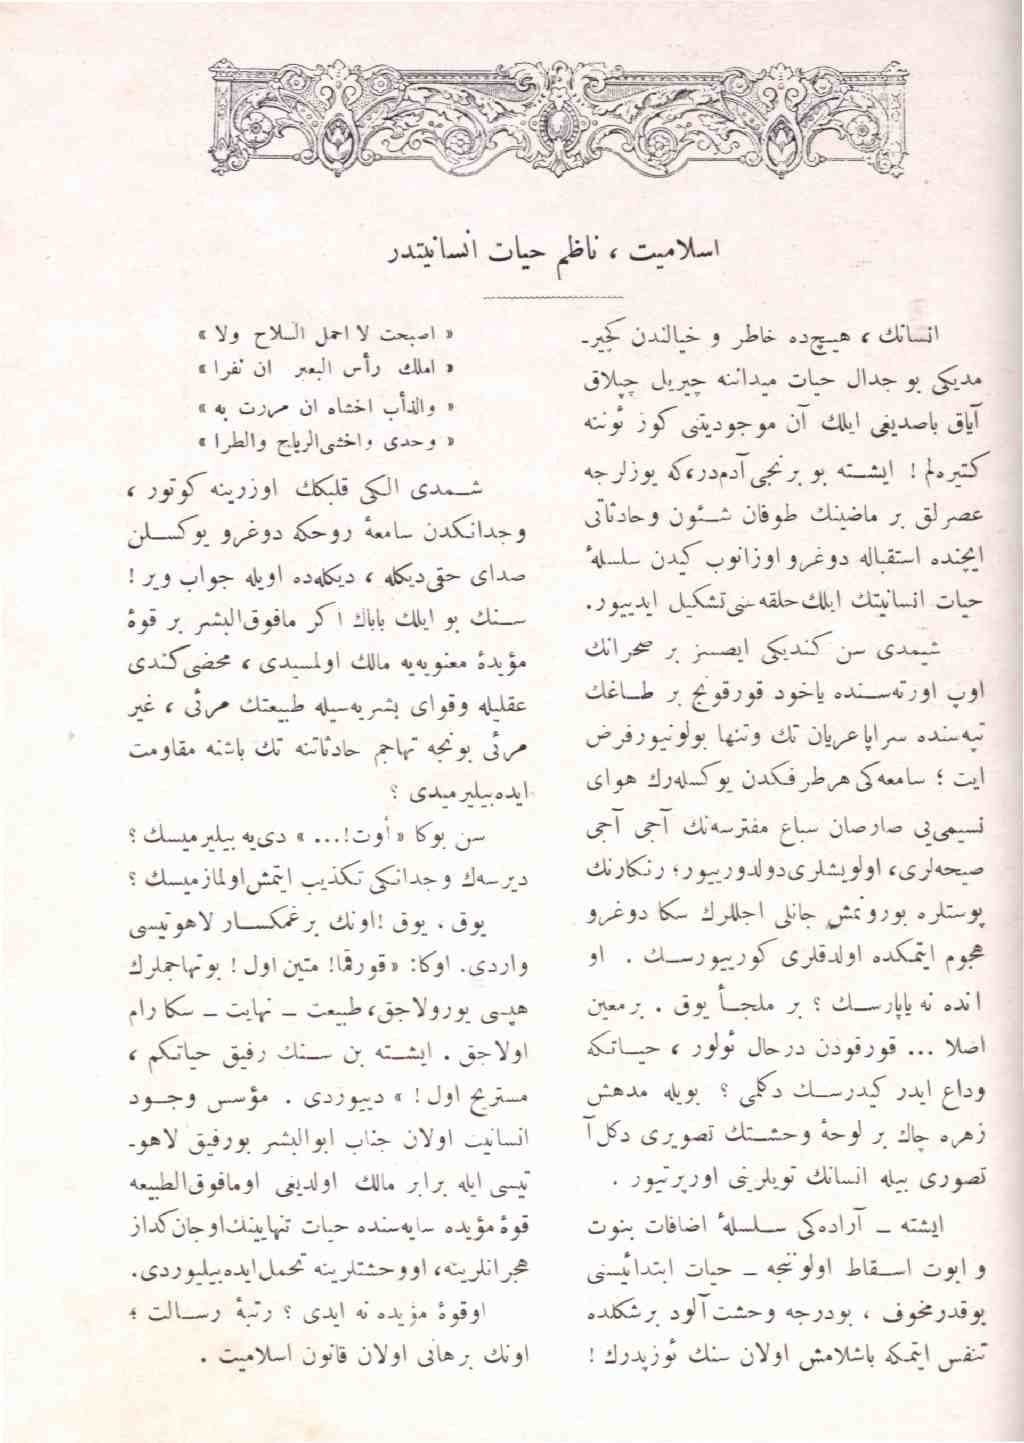 اسلامیت ، ناظم حیات انسانیتدر
انسانك ، هیـچ‌ده خاطر و خیالندن كچیر-
مدیكی بو جدال حیات میداننه چیریل چپلاق
آیاق باصدیغی ایلك آن موجودیتنی كوز ئوننه
كتیره‌لم ! ایشـته بو برنجی آدم‌در،كه یوزلرجه
عصرلق بر ماضینك طوفان شـئون وحادثاتی
ایچنده استقباله دوغرو اوزانوب كیدن سلسلهٔ
حیات انسانیتك ایلك حلقه‌سنی تشكیل ایدییور.
شیمدی سن كندیكی ایصسـز بر صحرانك
اوپ اورته‌سـنده یاخود قورقونج بر طـاغك
تپه‌سنده سراپاعریان تك وتنها بولونیورفرض
ایت ؛ سامعه‌كی هرطرفكدن یوكسله‌رك هوای
نسیمی‌یی صارصان سباع مفترسه‌نك آجی آجی
صیحه‌لری، اولویشلری‌دولدورییور؛ رنكارنك
پوستلره بورونمش جانلی اجللرك سكا دوغرو
هجوم ایتمكده اولدقلری كورییورسـك . او
انده نه یاپارسـك ؟ بر ملجـأ یوق . برمعین
اصلا ... قورقودن درحال ئولور ، حیـاتكه
وداع ایدر كیدرسـك دكلمی ؟ بویله مدهش
زهره چاك بر لوحهٔ وحشـتك تصویری دكل آ
تصوری بیله انسانك تویلرینی اورپرتیور .
ایشته ـ آراده‌كی سـلسلهٔ اضافات بنوت
و ابوت اسـقاط اولوننجه ـ حیات ابتدائیسنی
بوقدرمخوف ، بودرجه وحشت‌آلود برشكلده
تنفس ایتمكه باشلامش اولان سنك ئوزپدرك !
« اصبحت لا احمل السلاح ولا »
« املك رأس البعیر ان نفرا »
« والذأب اخشاه ان مررت به »
« وحدی واخشی‌الریاح والمطرا »
شـمدی الكی قلبكك اوزرینه كوتور ،
وجدانكدن سامعهٔ روحكه دوغرو یوكسـلن
صدای حقی‌دیكله ، دیكله‌ده اویله جواب ویر !
سـنك بو ایلك باباك اكر مافوق‌البشر بر قوهٔ
مؤیدهٔ معنویه‌یه مالك اولمسیدی ، محضی كندی
عقلیله وقوای بشریه‌سیله طبیعتك مرئی ، غیر
مرئی بونجه تهاجم حادثاتنه تك باشنه مقاومت
ایده‌بیلیرمیدی ؟
سن بوكا « أوت!... » دی‌یه بیلیرمیسك ؟
دیرسه‌ك وجدانكی تكذیب ایتمش‌اولمازمیسك ؟
یوق . یوق !اونك برغمكسـار لاهوتیسی
واردی. اوكا: «قورقما! متین اول ! بوتهاجملرك
هپسی یورولاجق، طبیعت ـ نهایت ـ سكا رام
اولاجق . ایشـته بن سـنك رفیق حیاتكم ،
مستریح اول ! » دییوردی . مؤسس وجـود
انسانیت اولان جناب ابوالبشر بورفیق لاهو-
تیسی ایله برابر مالك اولدیغی اومافوق‌الطبیعه
قوهٔ مؤیده سایه‌سنده حیات تنهایینك‌اوجان‌كداز
هجرانلرینه، اووحشتلرینه تحمل‌ایده‌بیلیوردی.
اوقوهٔ مؤیده نه ایدی ؟ رتبهٔ رسـالت ؛
اونك برهانی اولان قانون اسلامیت .